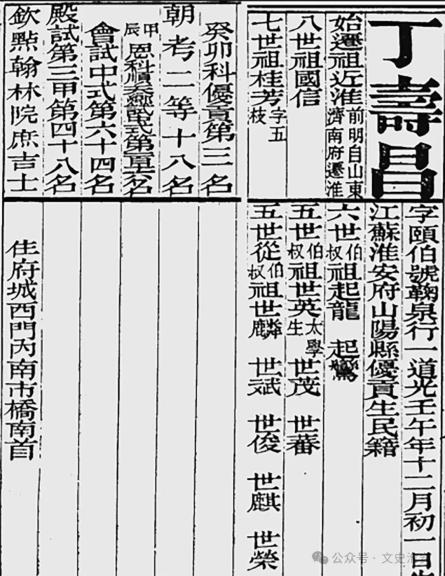 丁壽昌
字頤伯號鞠泉行一道光壬午年十二月初一日生
江蘇淮安府山陽縣優貢生民籍
始遷祖近淮前明自山東濟南府遷淮
八世祖國信
七世祖桂芳字五枝
六世伯叔祖起龍 起鸞
五世伯叔祖世英太學生 世茂 世蕃
五世從伯叔祖世麟 世斌 世俊 世麒 世榮
癸卯科優貢第三名
朝考二等十八名
甲辰恩科順天鄉試第名
會試中式第六十四名
殿試第三甲第四十八名
欽點翰林院庶吉士
住府城西門內南市橋南首
公众号·文史淮